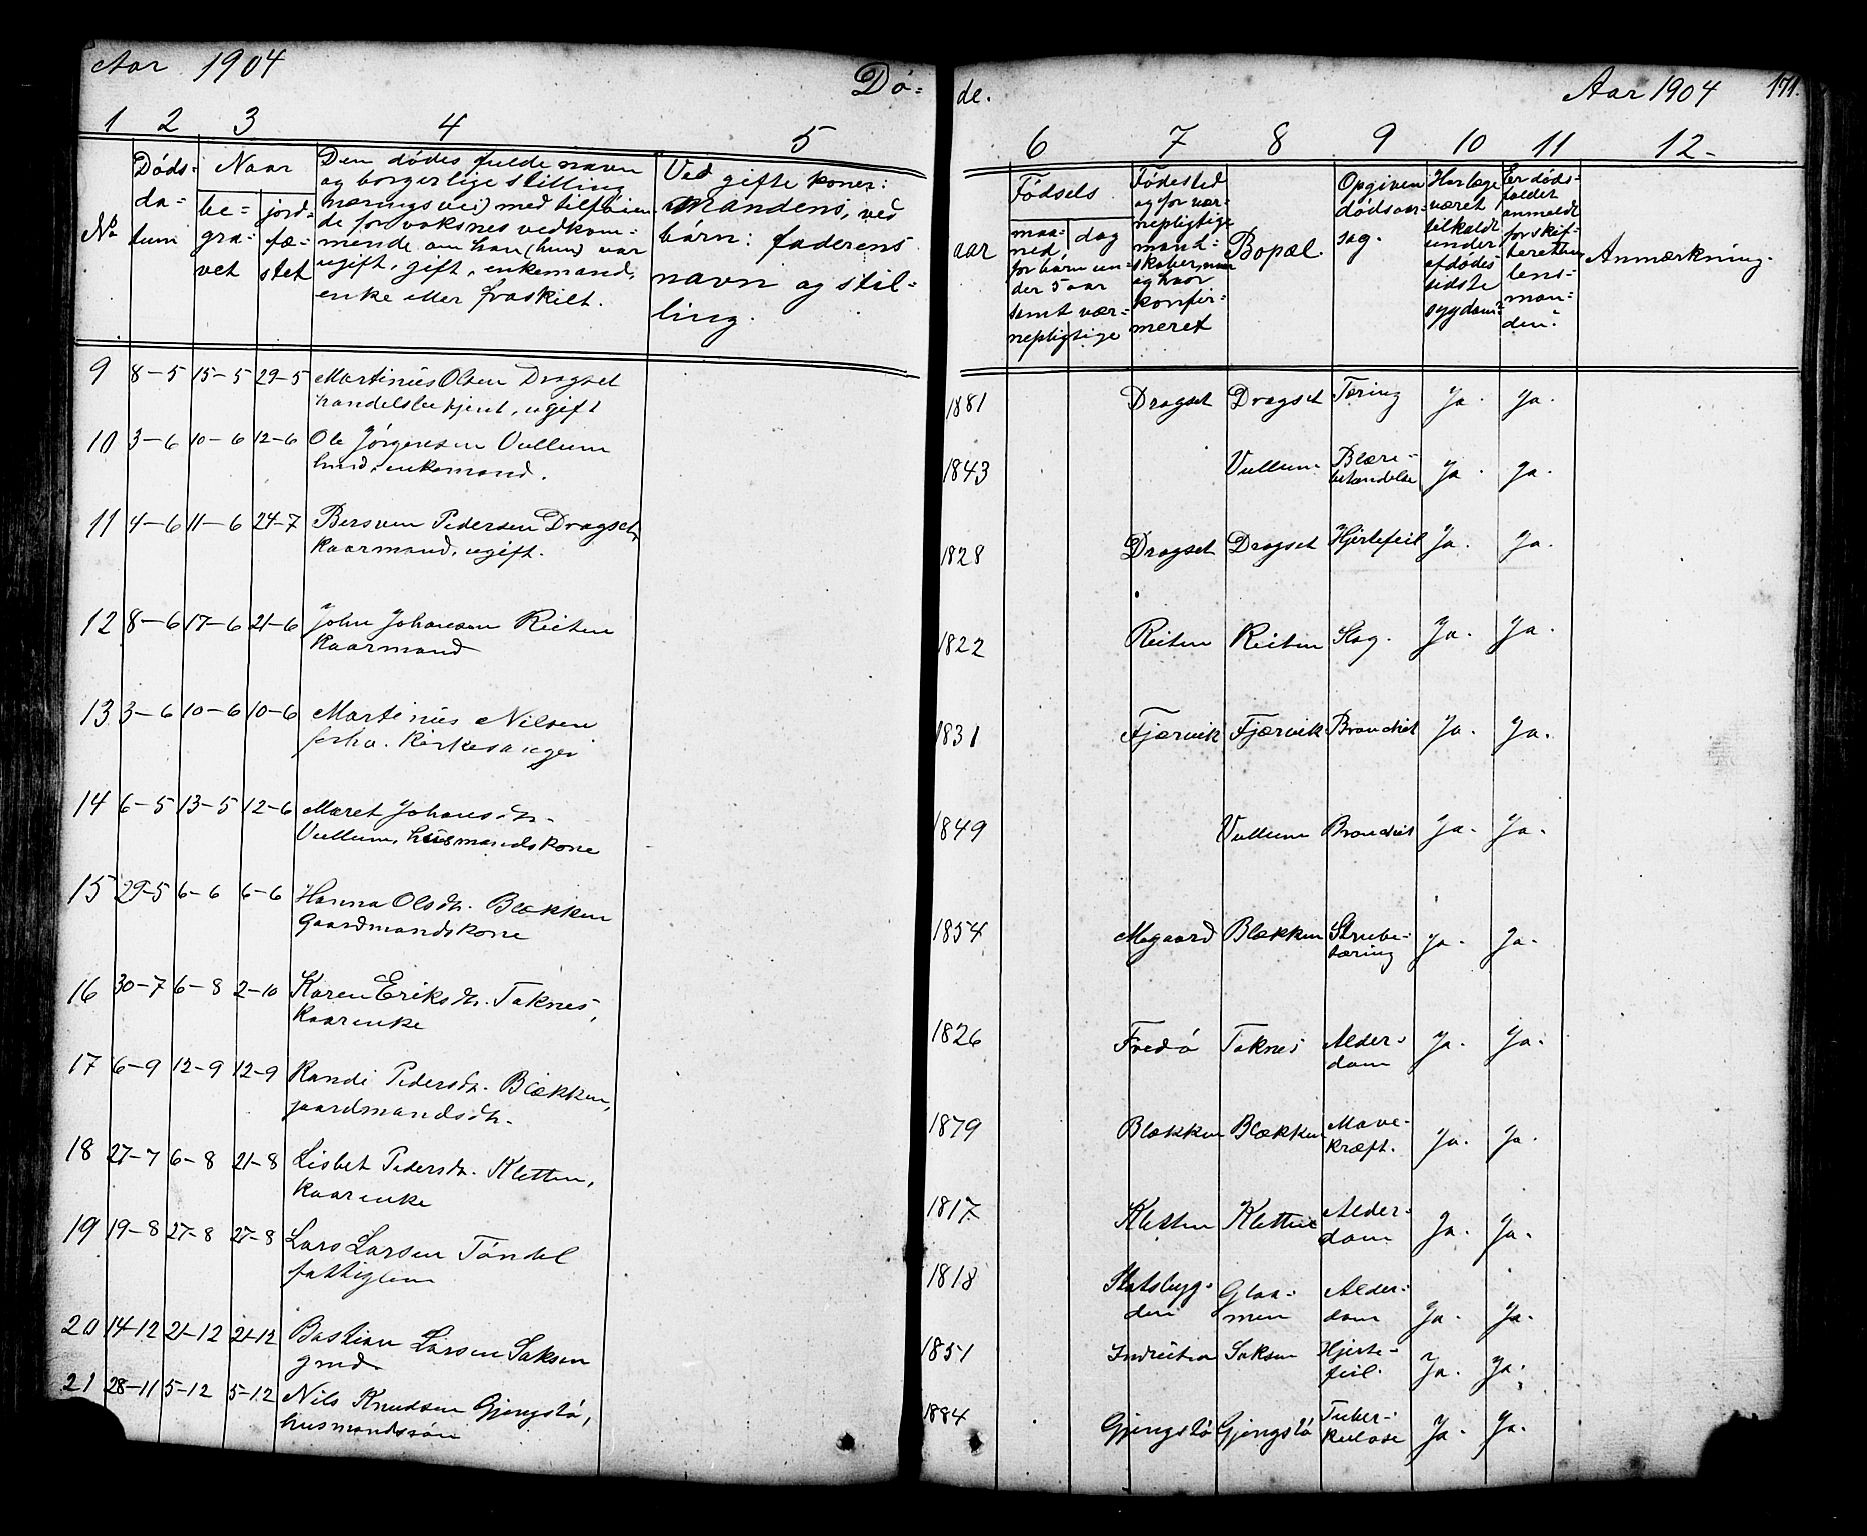 Aar 1904
Dø-
de.
Aar 1904
171.
1 2 3 4 5
6 7 8 9 10 11 12-
No
Døds-
da-
tum
Naar
be-
gra-
vet
jord-
fæ-
stet
Den dødes fulde navn
og borgerlige stilling
(næringsvei) med tilføien
de for voksnes vedkom-
mende om han (hun) var
ugift, gift, enkemand,
enke eller fraskilt.
Ved gifte koner:
Mandens, ved
børn: faderens
navn og stil-
ling.
aar
Fødsels
maa-
ned,
dag
for børn un-
der 5 aar
samt vær-
nepligtige
Fødested
og for vær-
nepligtige
mand-
skaber, naar
og hvor
konfir-
meret
Bopæl.
Opgiven
dødsaar-
sag.
Har læge
været
tilkaldt
under
afdødes
sidste
sygdom?
Er døds-
faldet
anmeldt
for skif-
teretten
lens-
man-
den?
Anmærkning.
9 8-5 15-5 29-5 Martinius Olsen Dragset
handelsbetjent, ugift
1881 Dragset Dragset Tæring Ja. Ja.
10 3-6 10-6 12-6 Ole Jørgensen Vullum
husm. enkemand.
1843 Vullum Blære-
betændelse Ja. Ja.
11 4-6 11-6 24-7 Bersven Pedersen Dragset,
kaarmand, ugift.
1828 Dragset Dragset Hjertefeil Ja. Ja.
12 8-6 17-6 21-6 John Johansen Reiten
kaarmand
1822 Reiten Reiten Slag. Ja. Ja.
13 3-6 10-6 10-6 Martinius Nilsen
forhv. kirkesanger
1831 Fjærvik Fjærvik Bronchit Ja. Ja.
14 6-5 13-5 12-6 Maret Johansdtr.
Vullum, husmandskone
1849 Vullum Bronchit Ja. Ja.
15 29-5 6-6 6-6 Hanna Olsdtr. Blækken
Gaardmandskone
1854 Mogaard Blækken Strube-
tæring Ja. Ja.
16 30-7 6-8 2-10 Karen Eriksdtr. Taknes,
kaarenke
1826 Fredø Taknes Alder-
dom Ja. Ja.
17 6-9 12-9 12-9 Randi Pedersdtr. Blækken,
gaardmandsdtr.
1879 Blækken Blækken Mave-
kræft. Ja. Ja.
18 27-7 6-8 21-8 Lisbet Pedersdtr. Kletten,
kaarenke
1817 Kletten Kletten Alder-
dom Ja. Ja.
19 19-8 27-8 27-8 Lars Larsen Tøndel
fattiglem
1818 Statsbyg-
den Glaa-
men Alder-
dom Ja. Ja.
20 14-12 21-12 21-12 Bastian Larsen Saksen
gmd.
1851 Saksen Hjerte-
feil. Ja. Ja.
21 28-11 5-12 5-12 Nils Knudsen Gjengstø,
husmandssøn
1884 Gjengstø Gjengstø Tuber-
kulose Ja. Ja.